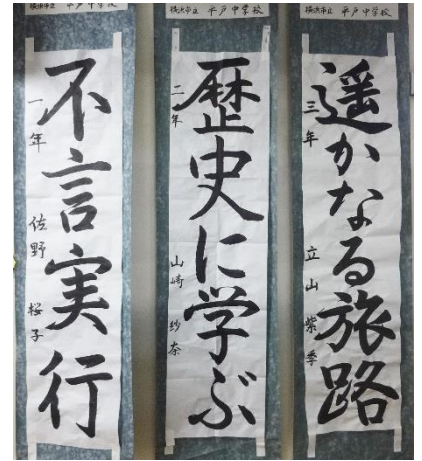 横浜市立 平戸中学校
遥かなる旅路
三年 立山紫季
横浜市立 平戸中学校
歴史に学ぶ
二年 山崎紗奈
横浜市立 平戸中学校
不言実行
一年 佐野桜子